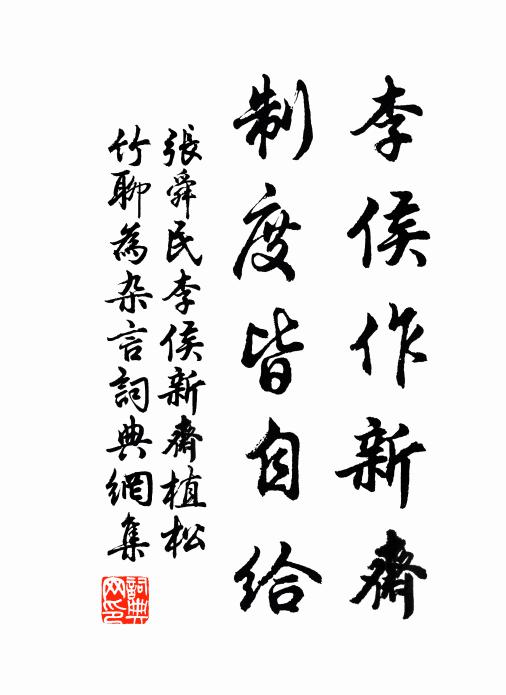 李侯作新齋
制度皆自給
張舜民李侯新齋植松
竹聊為杂言詞典網集
詞典
网印